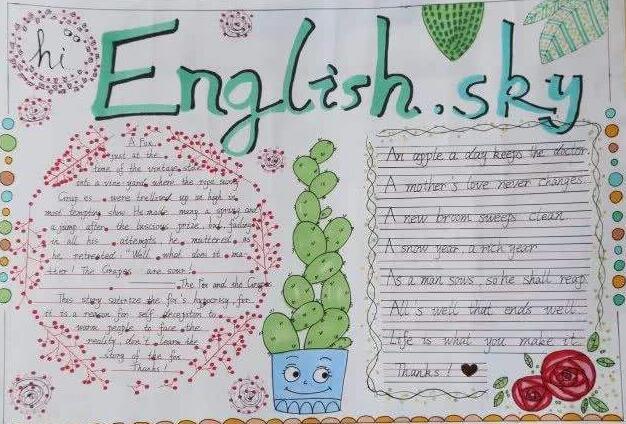 hi
English.sky
A Fox
just at the
time of the vintage stole
into a vine-yard where the ripe sunny
Grap es were trellised up on high in
most tempting show. He made many a spring and
a jump after the luscious prize and failing
in all his attempts, he muttered as
he retreated "Well what does it ma-
tter! The Grapes are sour!
The Fox and the Grapes
This story satirize the fox's hypocrisy, for
it is a reason for self deception to
warn people to face the
reality, don't learn the
story of the fox
Thanks!
An apple a day keeps the doctor
A mother's love never changes.
A new broom sweeps clean
A snow year, a rich year
As a man sows, so he shall reap
All's well that ends well.
Life is what you make it.
Thanks!